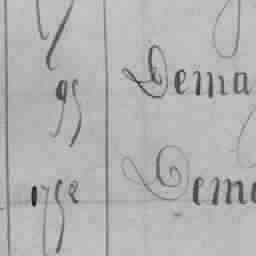 95 Dema
1752 Dema